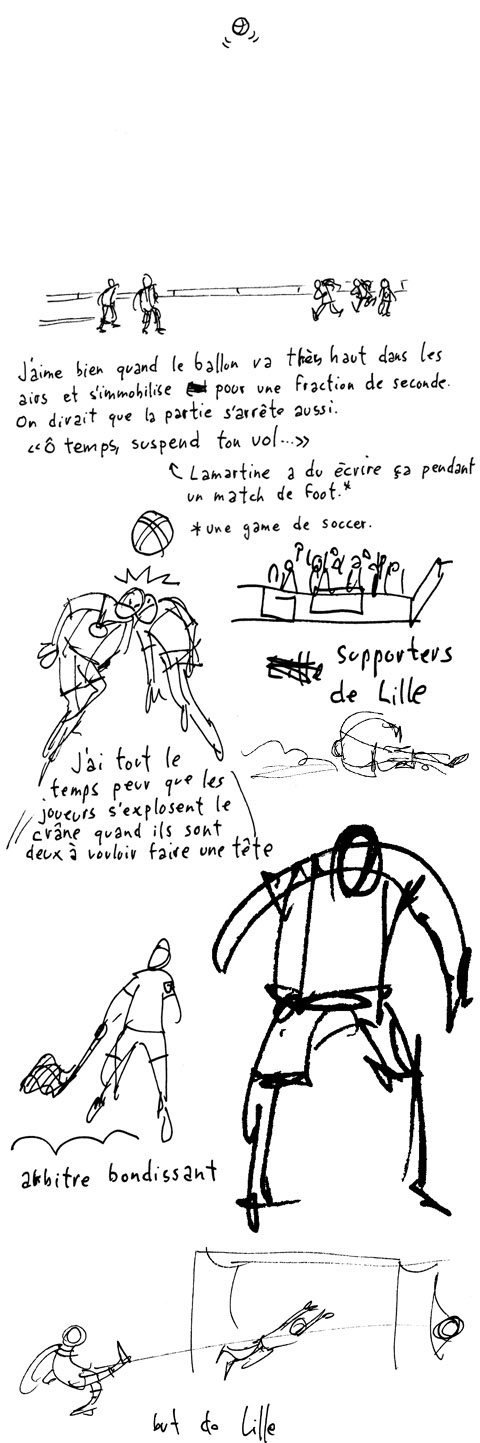 J'aime bien quand le ballon va très haut dans les
airs et s'immobilise pour une fraction de seconde.
On dirait que la partie s'arrête aussi.
«ô temps, suspend ton vol...»
Lamartine a du écrire ça pendant
un match de foot.*
*une game de soccer.
supporters
de Lille
J'ai tout le
temps peur que les
joueurs s'explosent le
crâne quand ils sont
deux à vouloir faire une tête
arbitre bondissant
but de Lille